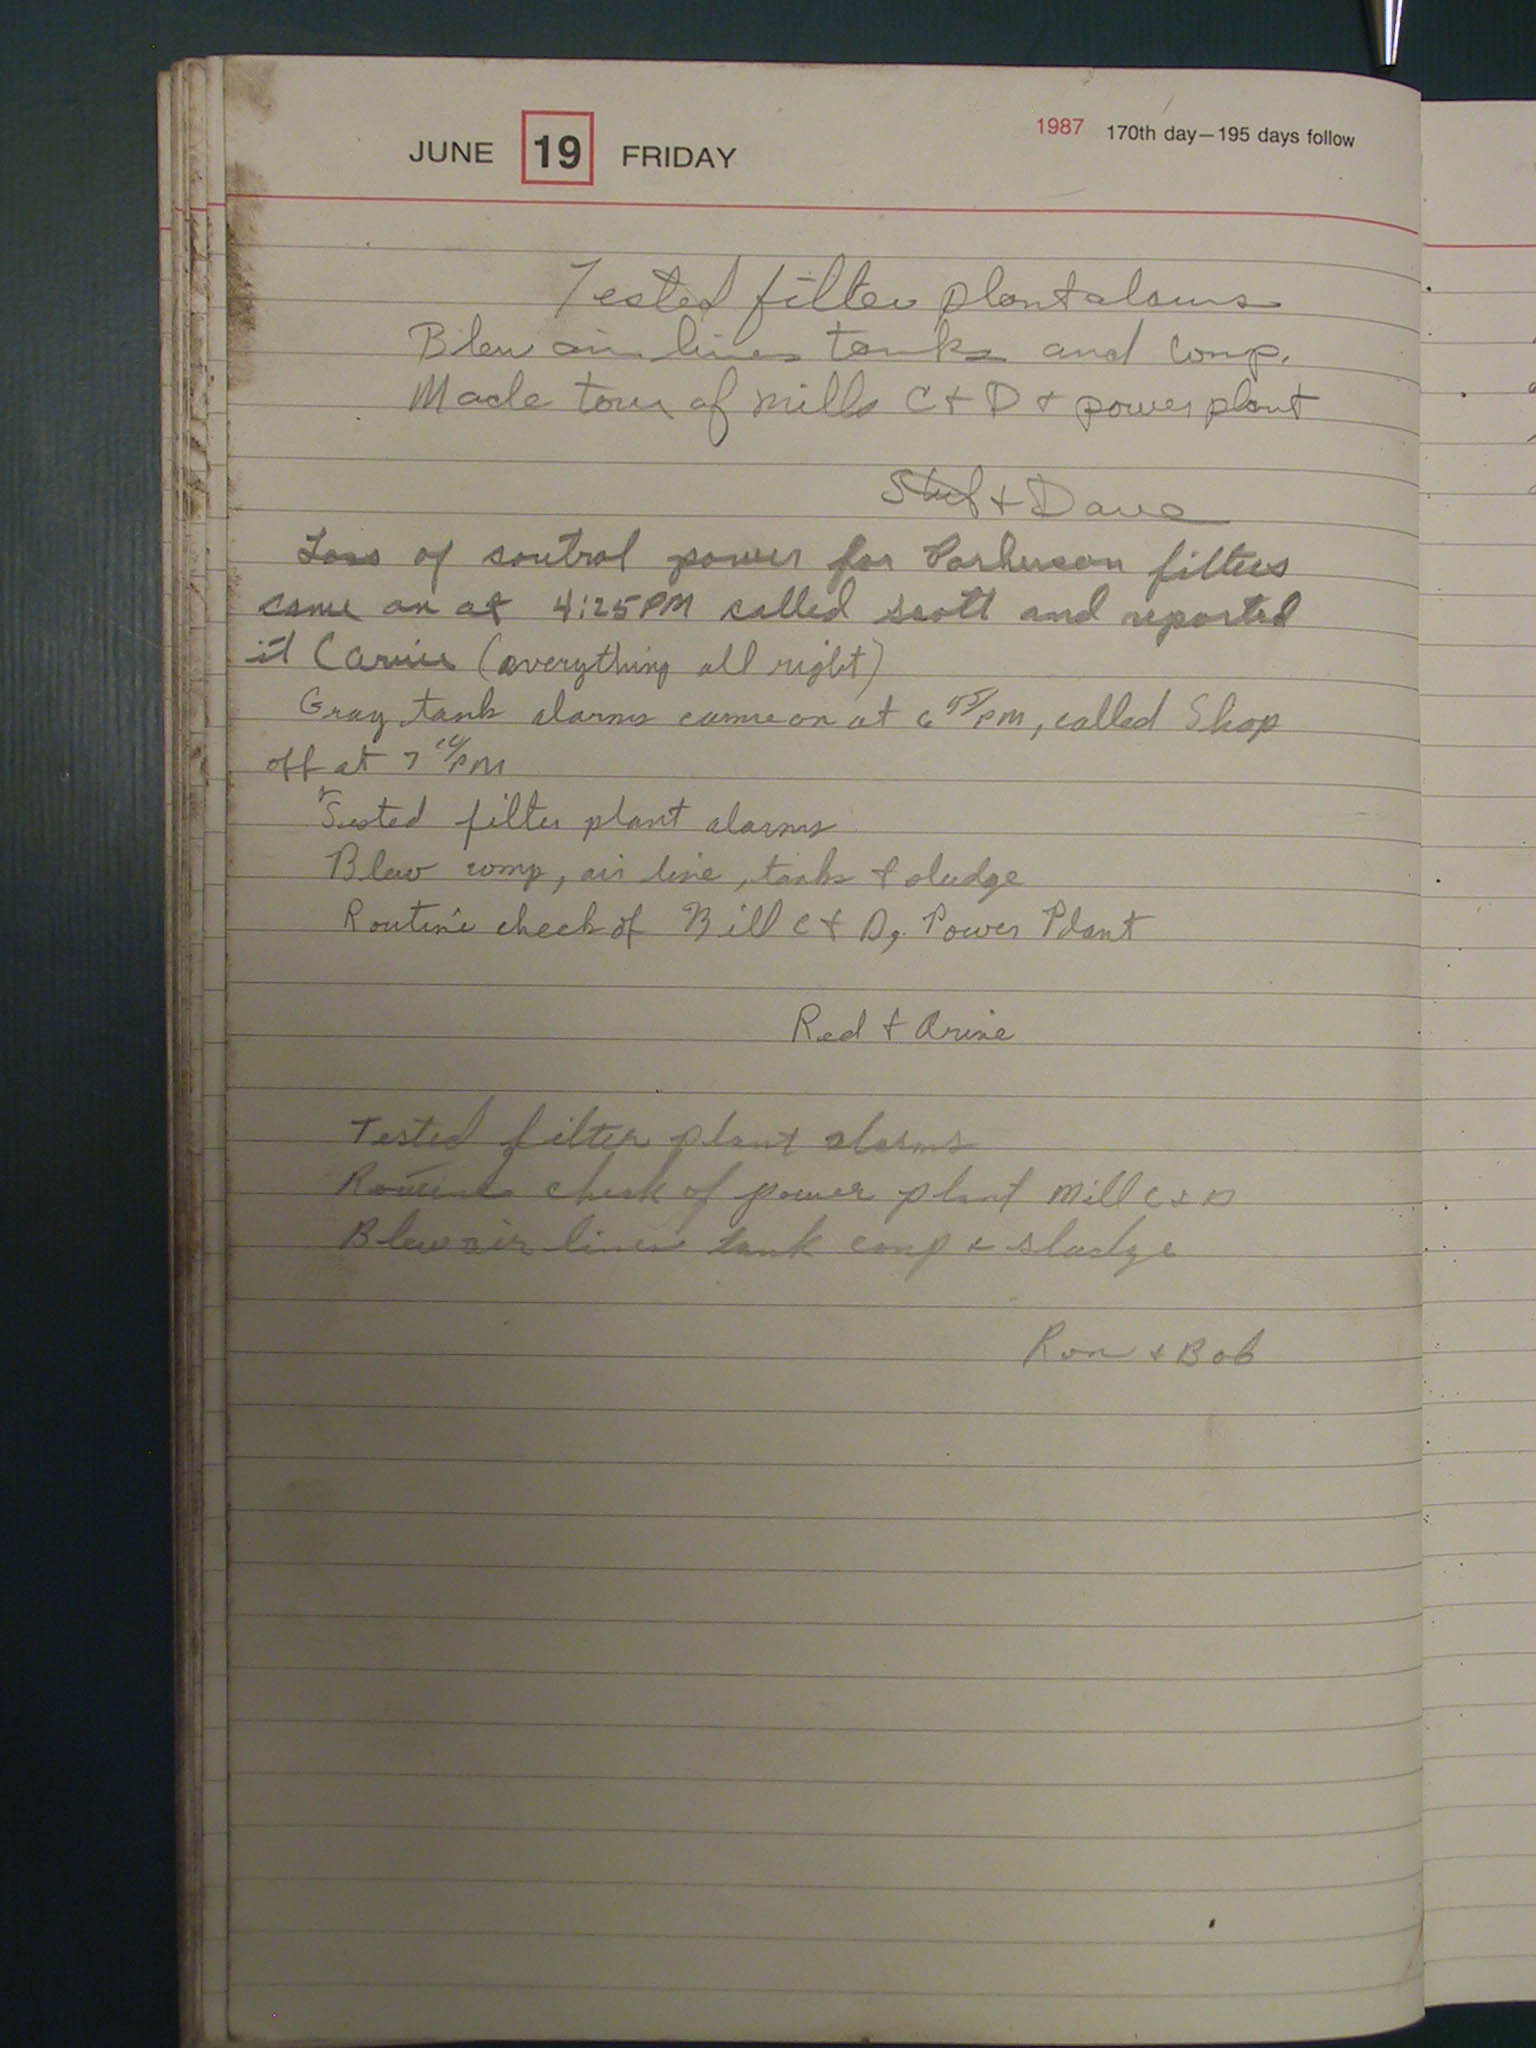 JUNE 19 FRIDAY 1987 170th day—195 days follow
Tested filter plant alarms
Blew air lines tanks and comp.
Made tour of mills C + D + power plant
+ Dave
Loss of control power for filters
came on at 4:25 PM called scott and reported
it (everything all right)
Gray tank alarms came on at 6 05/PM, called Shop
off at 7 10/PM
Tested filter plant alarms
Blew comp, air line, tanks + sludge
Routine check of Bill C + D, Power Plant
Red + Arine
Tested filter plant alarms
Routine check of power plant Mill C + D
Blew air lines tank comp + sludge
Ron + Bob